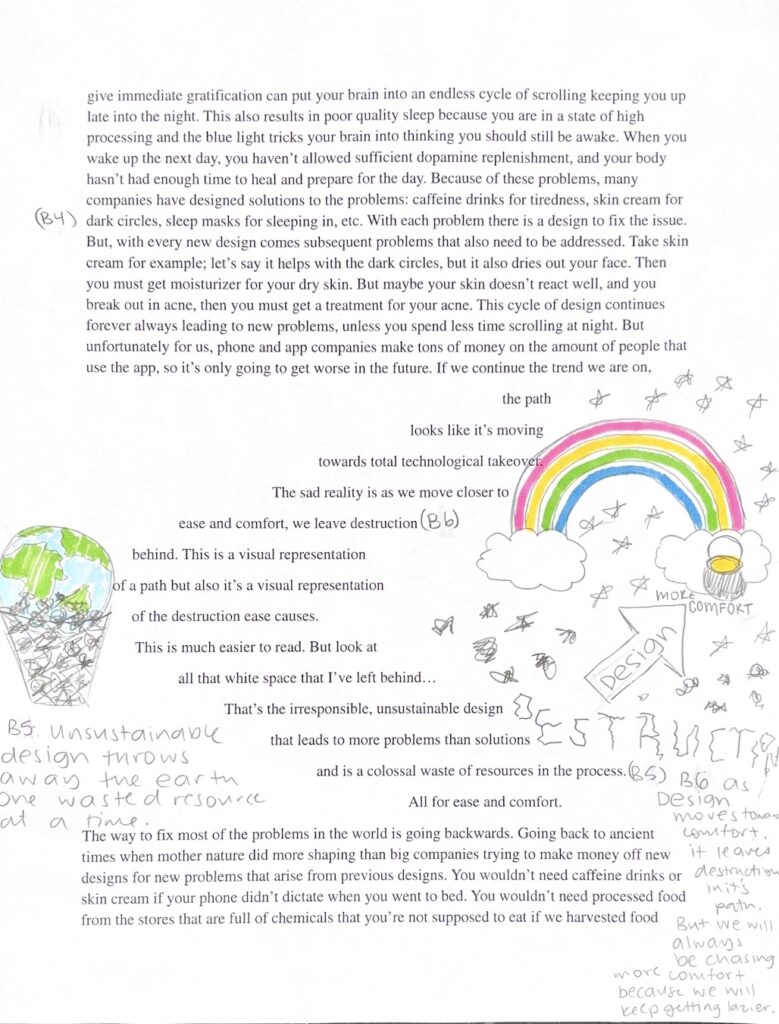 give immediate gratification can put your brain into an endless cycle of scrolling keeping you up
late into the night. This also results in poor quality sleep because you are in a state of high
processing and the blue light tricks your brain into thinking you should still be awake. When you
wake up the next day, you haven't allowed sufficient dopamine replenishment, and your body
hasn't had enough time to heal and prepare for the day. Because of these problems, many
companies have designed solutions to the problems: caffeine drinks for tiredness, skin cream for
(B4) dark circles, sleep masks for sleeping in, etc. With each problem there is a design to fix the issue.
But, with every new design comes subsequent problems that also need to be addressed. Take skin
cream for example; let's say it helps with the dark circles, but it also dries out your face. Then
you must get moisturizer for your dry skin. But maybe your skin doesn't react well, and you
break out in acne, then you must get a treatment for your acne. This cycle of design continues
forever always leading to new problems, unless you spend less time scrolling at night. But
unfortunately for us, phone and app companies make tons of money on the amount of people that
use the app, so it's only going to get worse in the future. If we continue the trend we are on,
the path
looks like it's moving
towards total technological takeover.
The sad reality is as we move closer to
ease and comfort, we leave destruction (B6)
behind. This is a visual representation
of a path but also it's a visual representation
of the destruction ease causes.
This is much easier to read. But look at
all that white space that I've left behind…
That's the irresponsible, unsustainable design
that leads to more problems than solutions
and is a colossal waste of resources in the process. (B5)
All for ease and comfort.
MORE
COMFORT
Design
DESTRUCTION
B5. Unsustainable
design throws
away the earth
one wasted resource
at a time.
B6 as
Design
moves toward
comfort,
it leaves
destruction
in it's
path.
But we will
always
be chasing
more comfort
because we will
keep getting lazier.
The way to fix most of the problems in the world is going backwards. Going back to ancient
times when mother nature did more shaping than big companies trying to make money off new
designs for new problems that arise from previous designs. You wouldn't need caffeine drinks or
skin cream if your phone didn't dictate when you went to bed. You wouldn't need processed food
from the stores that are full of chemicals that you're not supposed to eat if we harvested food